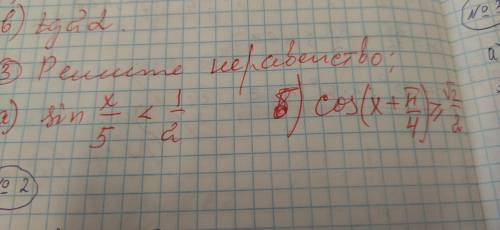 в) tg α.
№3
3 Решите неравенство;
а) sin x/5 < 1/2 б) cos(x + π/4) ≥ √2/2
а
№2